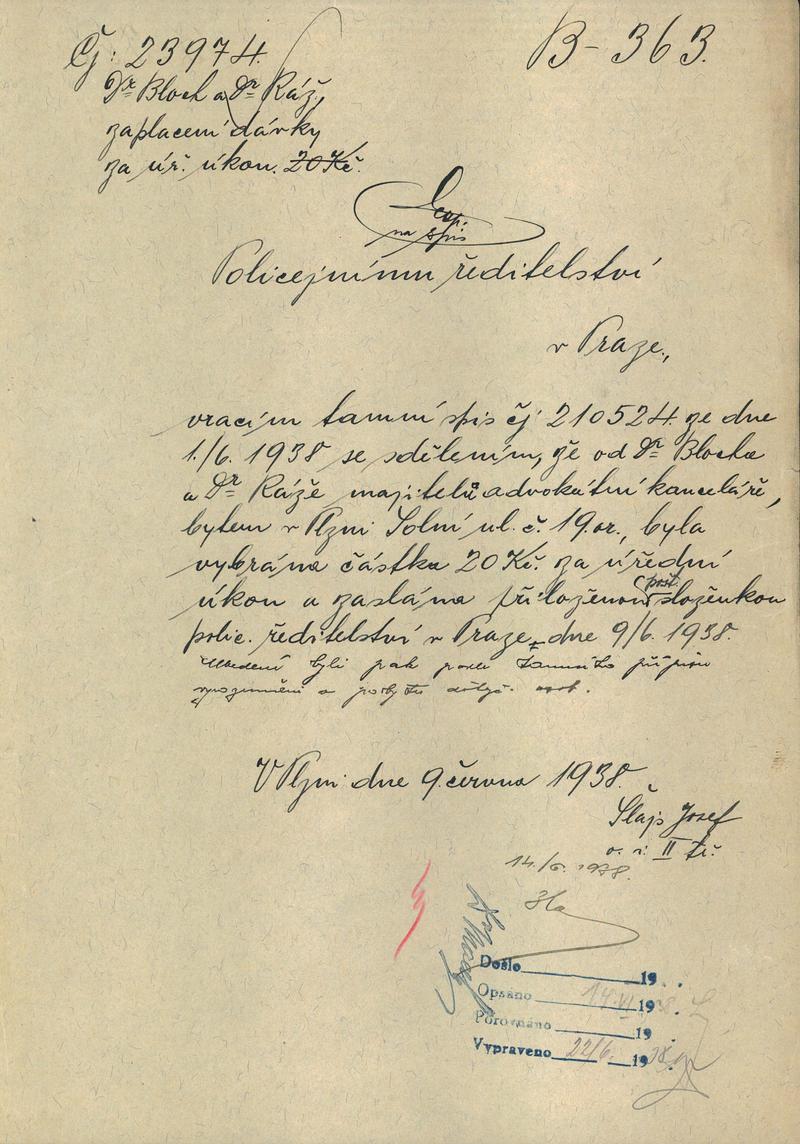 Čj: 23974.
B-363.
Dr Bloch a Dr Ráž,
zaplacení dávky
za úř. úkon. 20 Kč.
na spis
Policejnímu ředitelství
v Praze,
vracím tamní spis čj 210524 ze dne
1./6. 1938 se sdělením, že od Dr Blocha
a Dr Ráže majitelů advokátní kanceláře,
bytem v Plzni Solní ul. č. 19.or., byla
vybrána částka 20 Kč. za úřední
úkon a zaslána přiloženou pošt. složenkou
polic. ředitelství v Praze, dne 9/6. 1938.
Uvedení byli pak podle tamního přípisu
vyrozuměni o pobytu osob.
V Plzni dne 9. června 1938.
Šlajs Josef
o. s. II tř.
14./6. 1938.
Došlo 19
Opsáno 14.VI. 1938
Porovnáno 19
Vypraveno 22/6. 1938